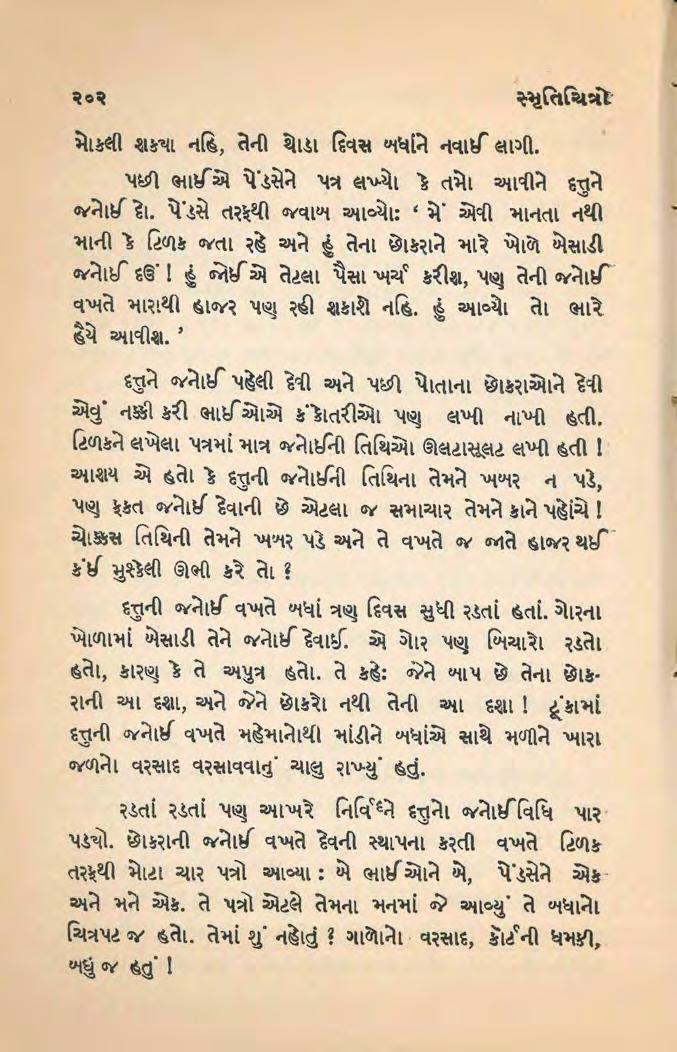 ૨૦૨
સ્મૃતિચિત્રો
મોકલી શકયા નહિ, તેની થોડા દિવસ બધાંને નવાઈ લાગી.
પછી ભાઈએ પેંડસેને પત્ર લખ્યો કે તમો આવીને દત્તુને
જનોઈ દો. પેંડસે તરફથી જવાબ આવ્યોઃ ‘ મેં એવી માનતા નથી
માની કે ટિળક જતા રહે અને હું તેના છોકરાને મારે ખોળે બેસાડી
જનોઈ દઉં ! હું જોઈએ તેટલા પૈસા ખર્ચ કરીશ, પણ તેની જનોઈ
વખતે મારાથી હાજર પણ રહી શકાશે નહિ. હું આવ્યો તો ભારે
હૈયે આવીશ. ’
દત્તુને જનોઈ પહેલી દેવી અને પછી પોતાના છોકરાઓને દેવી
એવું નક્કી કરી ભાઈઓએ કંકોતરીઓ પણ લખી નાખી હતી.
ટિળકને લખેલા પત્રમાં માત્ર જનોઈની તિથિઓ ઊલટાસૂલટ લખી હતી !
આશય એ હતો કે દત્તુની જનોઈની તિથિના તેમને ખબર ન પડે,
પણ ફકત જનોઈ દેવાની છે એટલા જ સમાચાર તેમને કાને પહોંચે !
ચોક્કસ તિથિની તેમને ખબર પડે અને તે વખતે જ જાતે હાજર થઈ
કંઈ મુશ્કેલી ઊભી કરે તો ?
દત્તુની જનોઈ વખતે બધાં ત્રણ દિવસ સુધી રડતાં હતાં. ગોરના
ખોળામાં બેસાડી તેને જનોઈ દેવાઈ. એ ગોર પણ બિચારો રડતો
હતો, કારણ કે તે અપુત્ર હતો. તે કહેઃ જેને બાપ છે તેના છોક-
રાની આ દશા, અને જેને છોકરો નથી તેની આ દશા ! ટૂંકામાં
દત્તુની જનોઈ વખતે મહેમાનોથી માંડીને બધાંએ સાથે મળીને ખારા
જળનો વરસાદ વરસાવવાનું ચાલુ રાખ્યું હતું.
રડતાં રડતાં પણ આખરે નિર્વિઘ્ને દત્તુનો જનોઈવિધિ પાર
પડયો. છોકરાની જનોઈ વખતે દેવની સ્થાપના કરતી વખતે ટિળક
તરફથી મોટા ચાર પત્રો આવ્યા : બે ભાઈઓને બે, પેંડસેને એક
અને મને એક. તે પત્રો એટલે તેમના મનમાં જે આવ્યું તે બધાનો
ચિત્રપટ જ હતો. તેમાં શું નહોતું ? ગાળોનો વરસાદ, કૉર્ટની ધમકી,
બધું જ હતું !